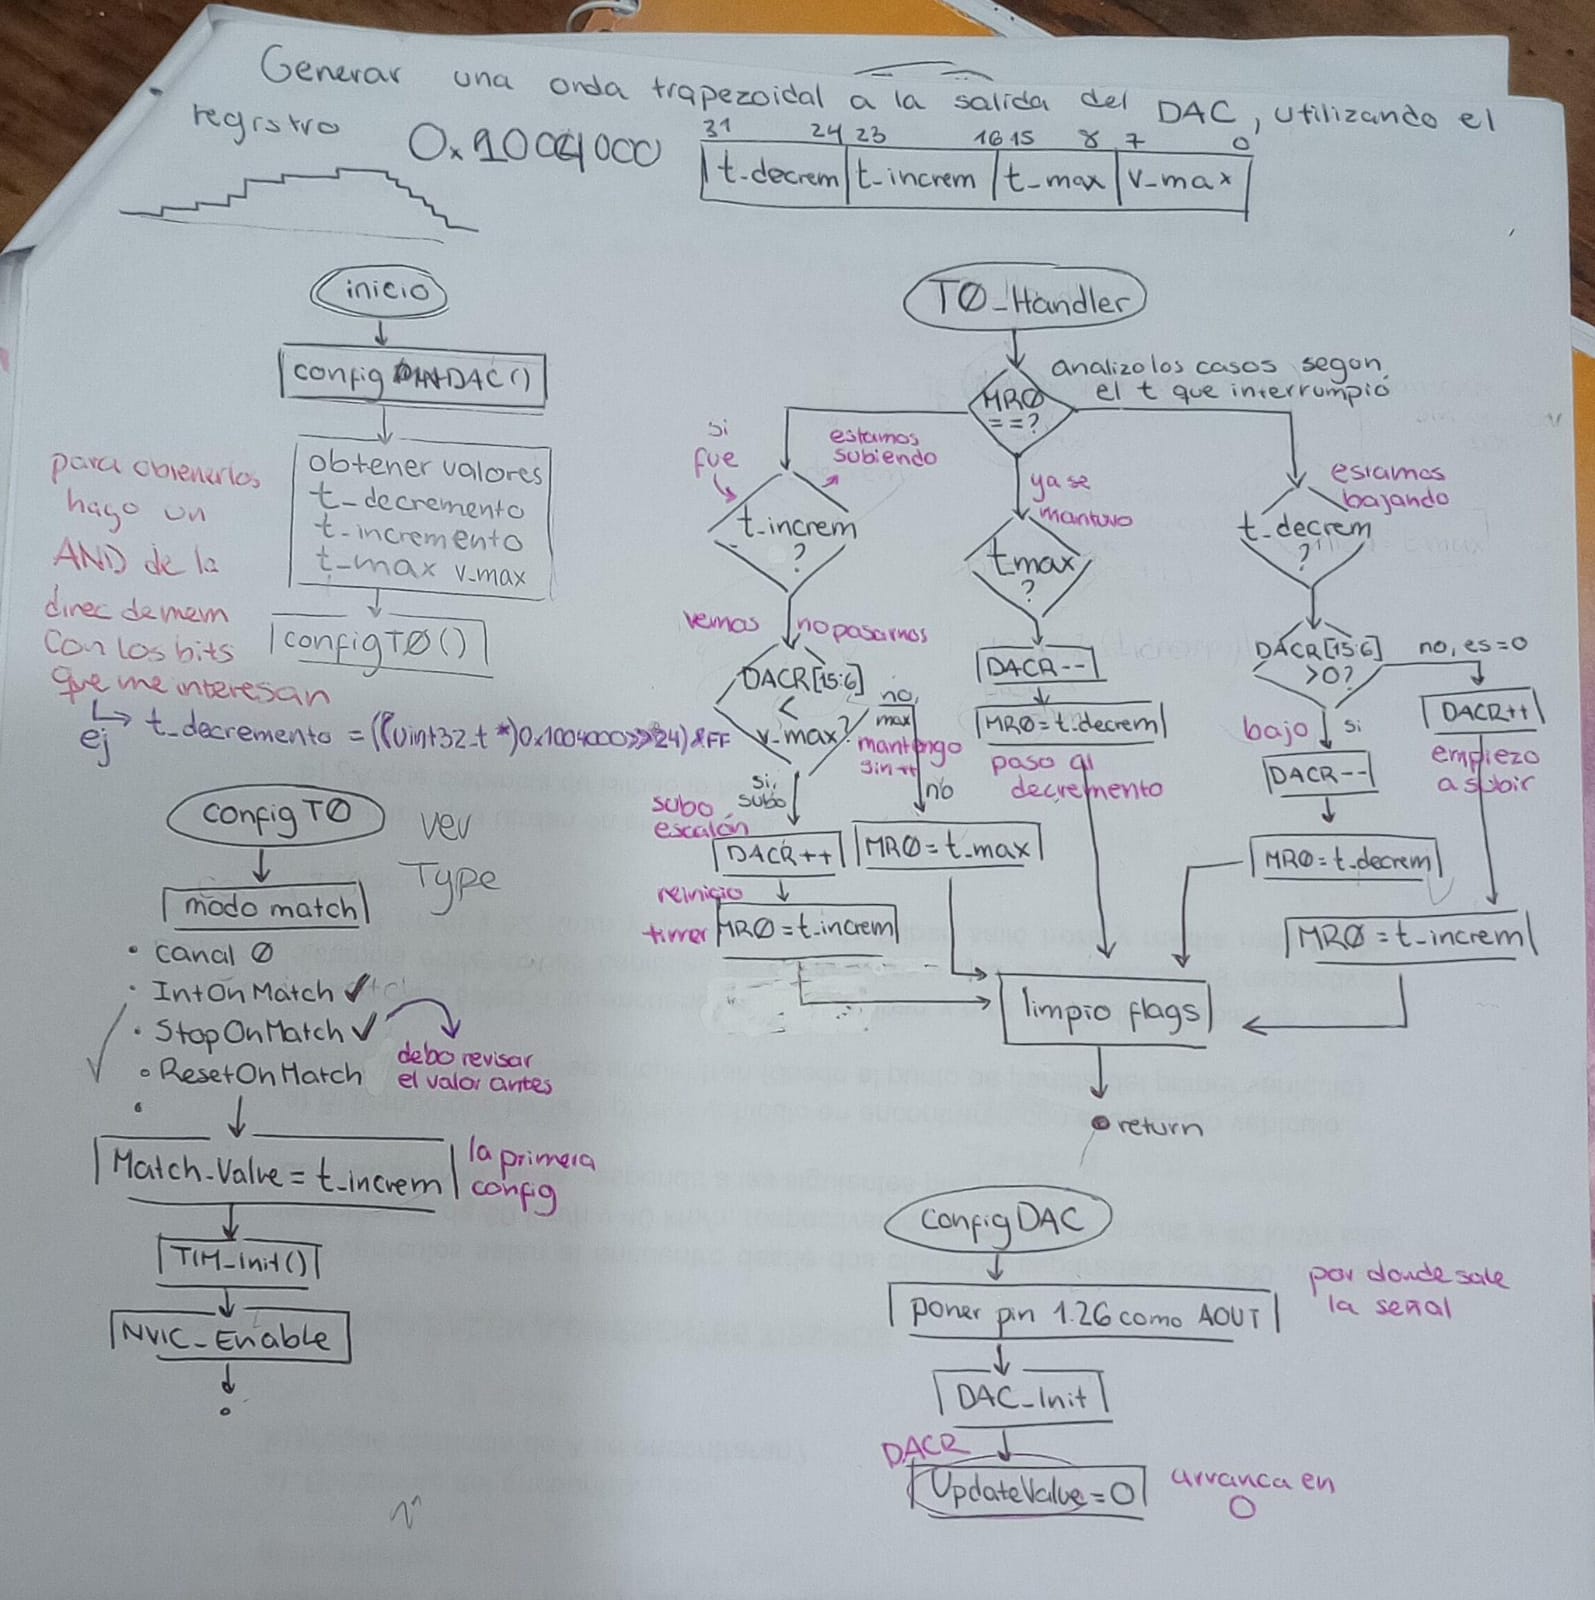 Generar una onda trapezoidal a la salida del DAC, utilizando el
registro 0x1004000
31 24 23 16 15 8 7 0
t-decrem t-increm t-max v-max
inicio
config DAC()
obtener valores
t-decremento
t-incremento
t-max v-max
config TØ()
para obtenerlos
hago un
AND de la
direc de mem
con los bits
que me interesan
ej t-decremento = ((uint32_t*)0x1004000>>24)&FF
config TØ
ver
Type
modo match
• canal Ø
• IntOnMatch ✓
• StopOnMatch ✓
• ResetOnMatch
debo revisar
el valor antes
Match-Value = t-increm
la primera
config
TIM-Init()
NVIC-Enable
TØ-Handler
analizo los casos segon
el t que interrumpió
MRØ
==?
si
fue
estamos
subiendo
t-increm
?
vemos no pasarnos
DACR[15:6]
<
v-max?
si,
subo
subo
escalón
DACR++
reinicio
timer
MRØ = t-increm
no,
max
mantengo
sin ++
no
MRØ = t-max
ya se
mantuvo
tmax
?
DACR--
MRØ = t-decrem
paso al
decremento
estamos
bajando
t-decrem
?
DACR[15:6]
>0?
no, es=0
bajo si
DACR--
MRØ = t-decrem
DACR++
empiezo
a subir
MRØ = t-increm
limpio flags
return
config DAC
poner pin 1.26 como AOUT
por donde sale
la señal
DAC-Init
DACR
UpdateValue = 0
arranca en
0